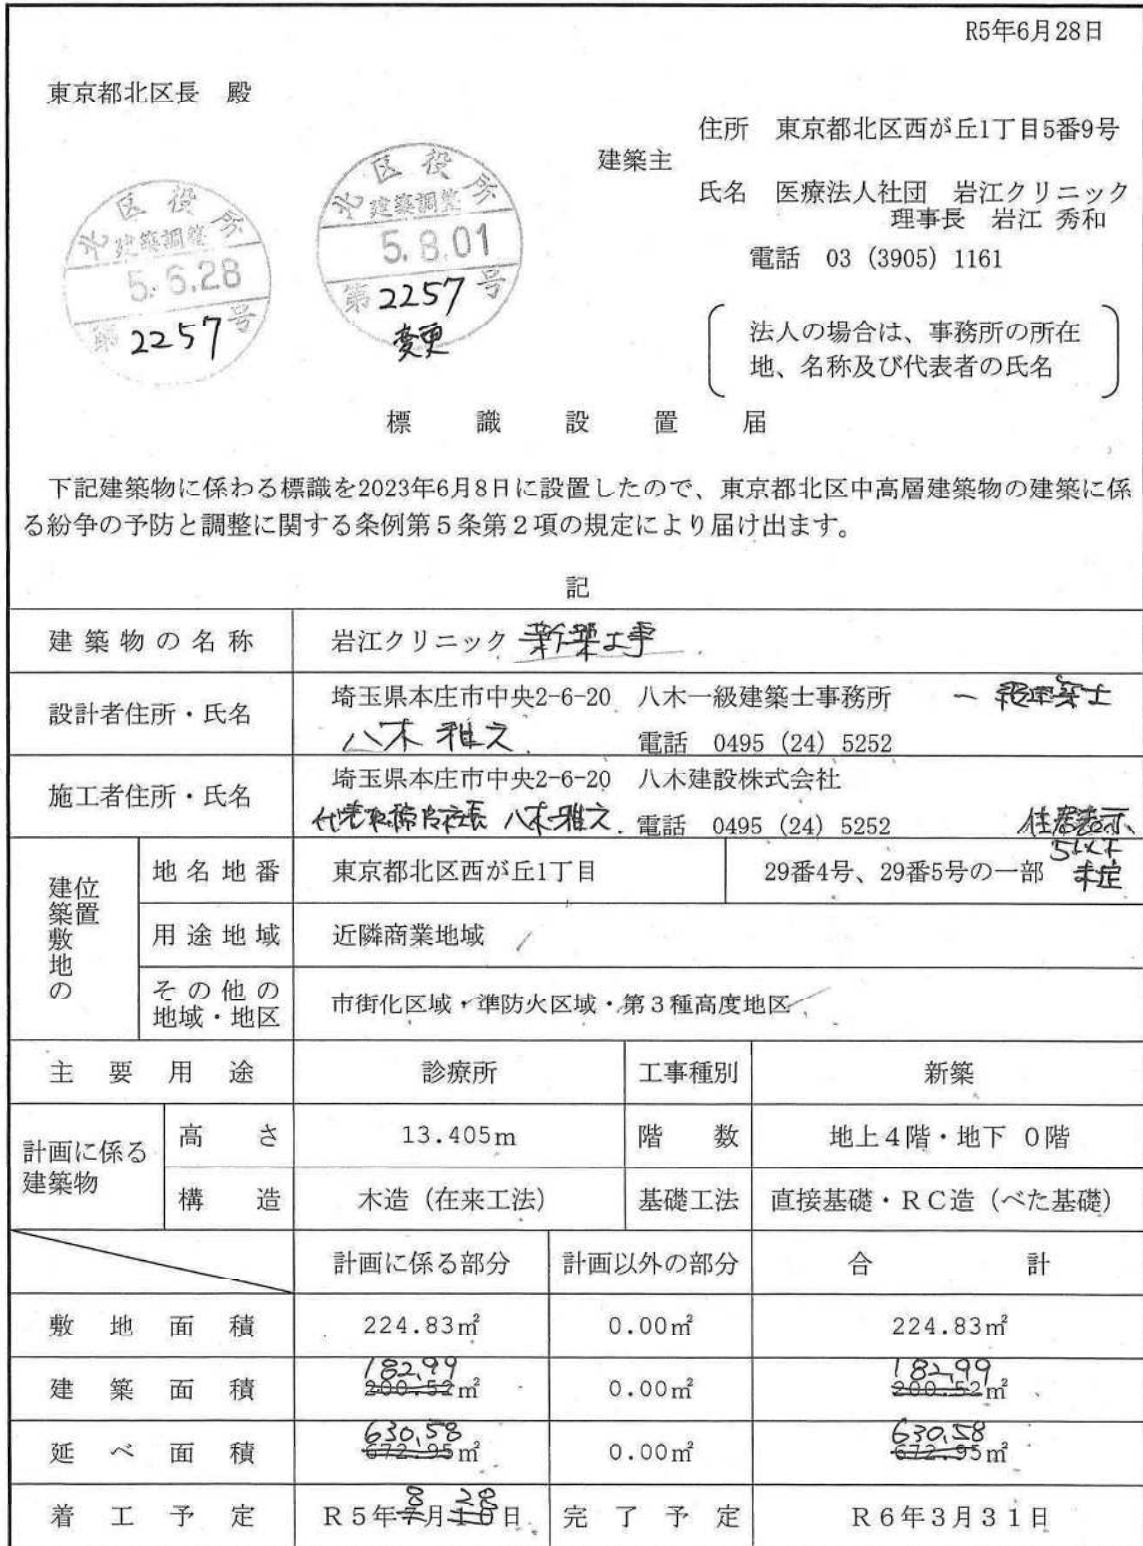 R5年6月28日
東京都北区長　殿
住所　東京都北区西が丘1丁目5番9号
建築主
氏名　医療法人社団　岩江クリニック
理事長　岩江 秀和
電話　03 (3905) 1161
法人の場合は、事務所の所在
地、名称及び代表者の氏名
北区役所
建築調整
5.6.28
第2257号
北区役所
建築調整
5.8.01
第2257号
変更
標　識　設　置　届
下記建築物に係わる標識を2023年6月8日に設置したので、東京都北区中高層建築物の建築に係
る紛争の予防と調整に関する条例第5条第2項の規定により届け出ます。
記
建築物の名称　岩江クリニック 新築工事
設計者住所・氏名　埼玉県本庄市中央2-6-20　八木一級建築士事務所　一級建築士
八木 雅之　電話　0495 (24) 5252
施工者住所・氏名　埼玉県本庄市中央2-6-20　八木建設株式会社
代表取締役社長 八木雅之　電話　0495 (24) 5252
住居表示、
5以下
未定
建築敷地の位置
地名地番　東京都北区西が丘1丁目　29番4号、29番5号の一部
用途地域　近隣商業地域
その他の
地域・地区　市街化区域・準防火区域・第3種高度地区
主要用途　診療所　工事種別　新築
計画に係る
建築物
高さ　13.405m　階数　地上4階・地下 0階
構造　木造（在来工法）　基礎工法　直接基礎・RC造（べた基礎）
計画に係る部分　計画以外の部分　合計
敷地面積　224.83㎡　0.00㎡　224.83㎡
182.99　182.99
建築面積　200.52㎡　0.00㎡　200.52㎡
630.58　630.58
延べ面積　672.95㎡　0.00㎡　672.95㎡
8　28
着工予定　R5年7月10日　完了予定　R6年3月31日